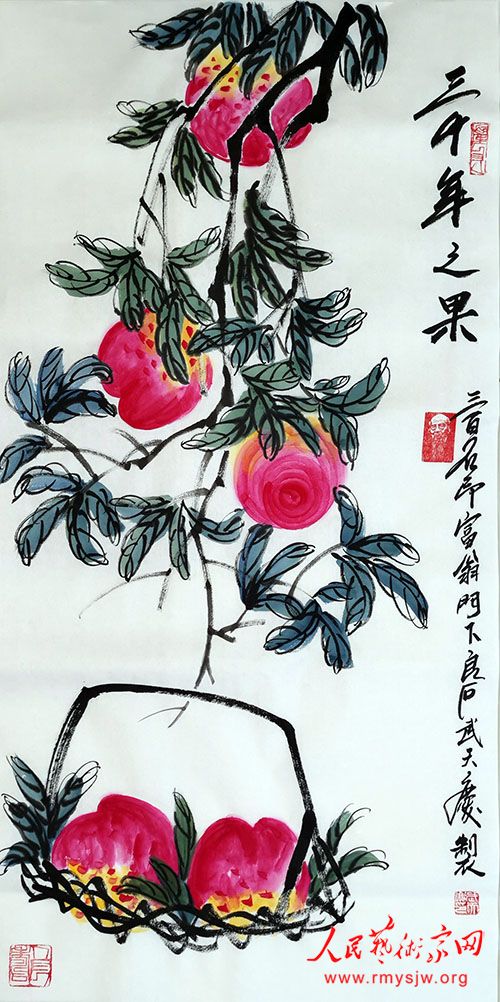 三千年之果
三百石印富翁門下良石武天慶製
人民藝術家网
www.rmysjw.org